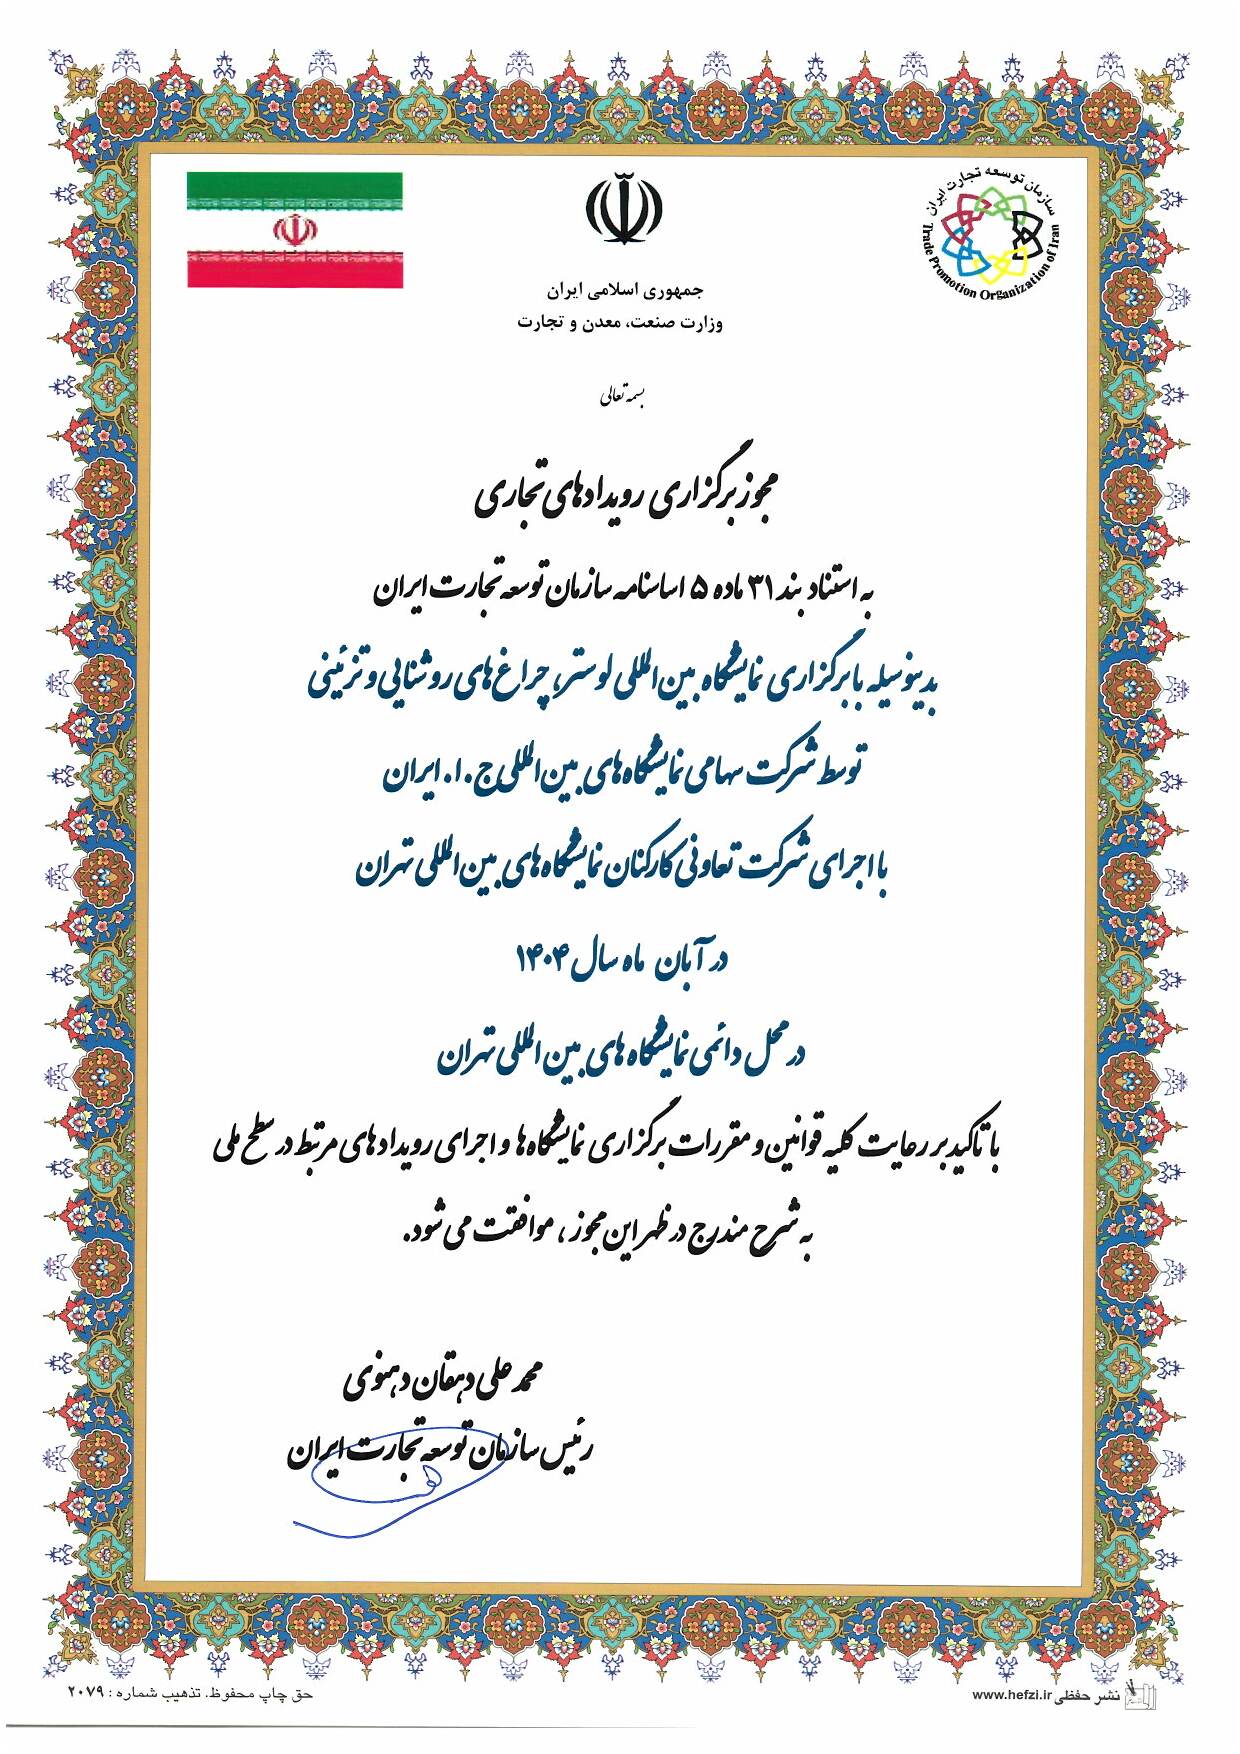 سازمان توسعه تجارت ایران
Trade Promotion Organization of Iran
جمهوری اسلامی ایران
وزارت صنعت، معدن و تجارت
بسمه تعالی
مجوز برگزاری رویدادهای تجاری
به استناد بند ۳۱ ماده ۵ اساسنامه سازمان توسعه تجارت ایران
بدینوسیله با برگزاری نمایشگاه بین المللی لوستر، چراغ های روشنایی و تزئینی
توسط شرکت سهامی نمایشگاه های بین المللی ج.ا. ایران
با اجرای شرکت تعاونی کارکنان نمایشگاه های بین المللی تهران
در آبان ماه سال ۱۴۰۴
در محل دائمی نمایشگاه های بین المللی تهران
با تاکید بر رعایت کلیه قوانین و مقررات برگزاری نمایشگاه ها و اجرای رویدادهای مرتبط در سطح ملی
به شرح مندرج در ظهر این مجوز، موافقت می شود.
محمد علی دهقان دهنوی
رئیس سازمان توسعه تجارت ایران
نشر حفظی www.hefzi.ir
حق چاپ محفوظ. تذهیب شماره : ۲۰۷۹